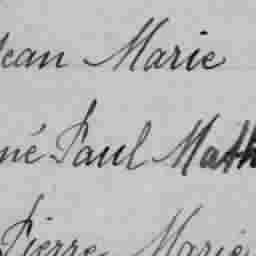 Jean Marie
né Paul Math
Pierre Marie